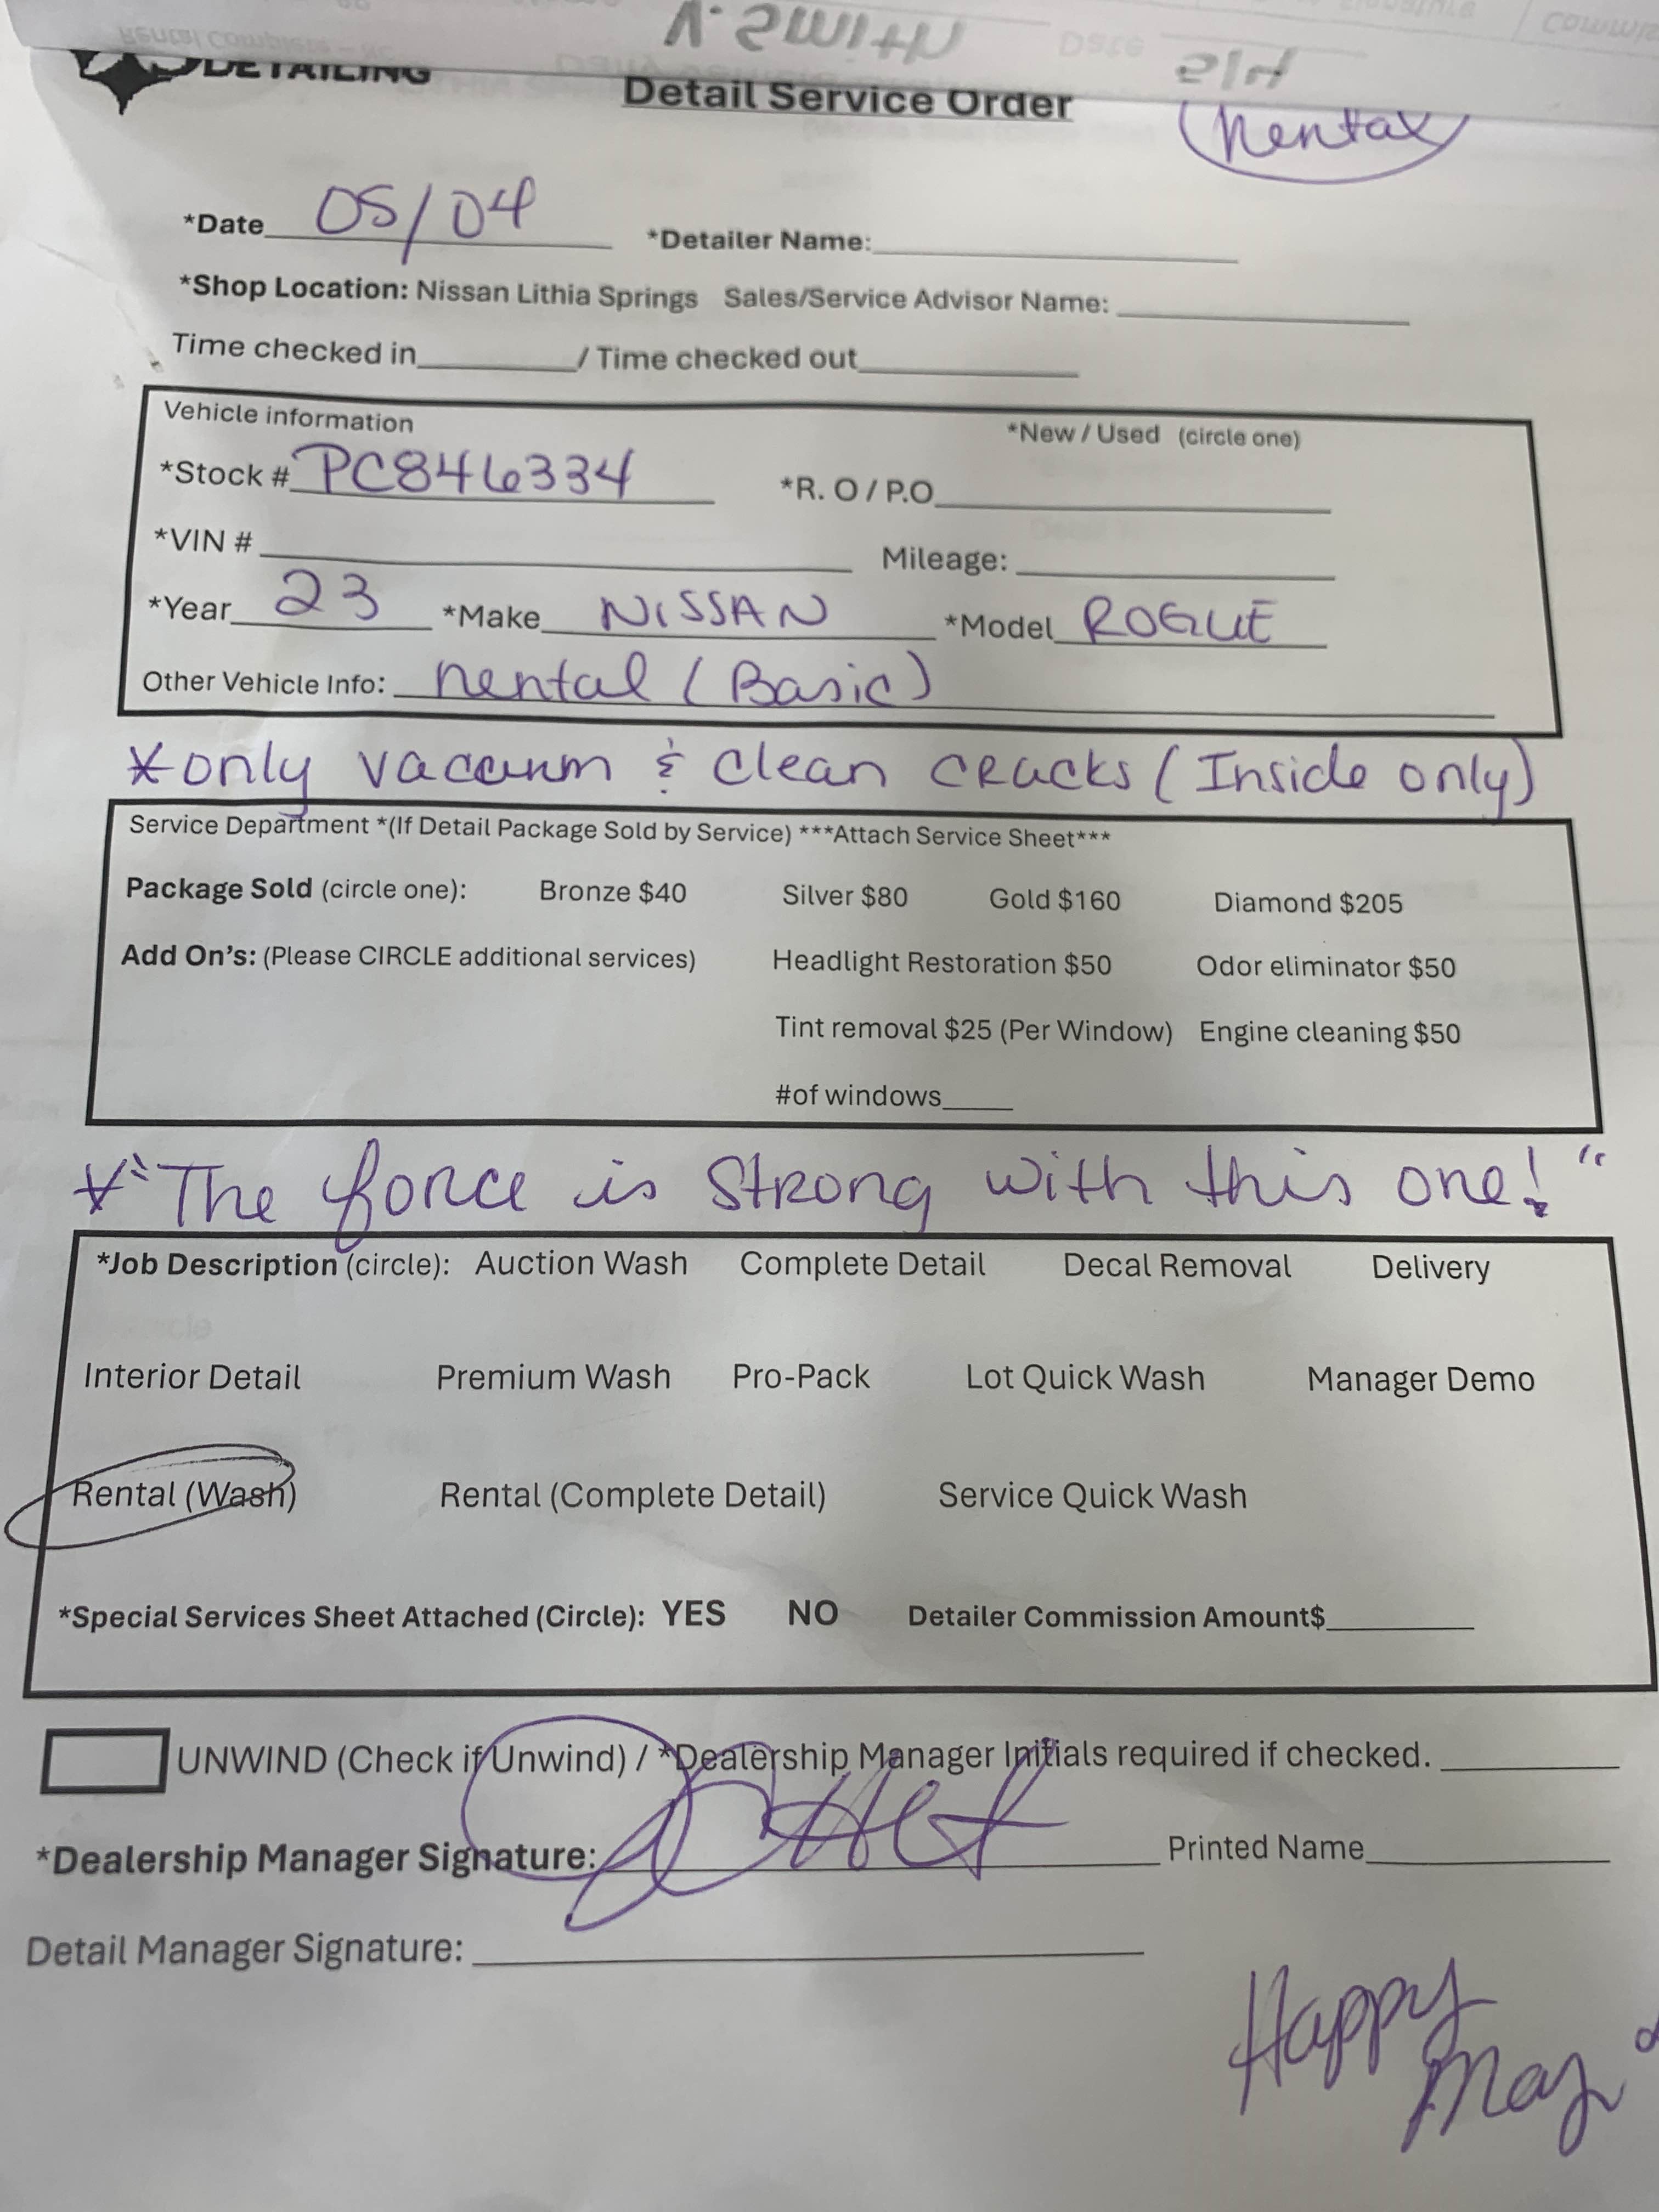 N. Smith Date 5/4
DETAILING
Detail Service Order
Rental
*Date 05/04 *Detailer Name:
*Shop Location: Nissan Lithia Springs Sales/Service Advisor Name:
Time checked in / Time checked out
Vehicle information
*New / Used (circle one)
*Stock # PC846334 *R. O / P.O
*VIN # Mileage:
*Year 23 *Make NISSAN *Model ROGUE
Other Vehicle Info: Rental (Basic)
*only vacuum & clean cracks (Inside only)
Service Department *(If Detail Package Sold by Service) ***Attach Service Sheet***
Package Sold (circle one): Bronze $40 Silver $80 Gold $160 Diamond $205
Add On's: (Please CIRCLE additional services) Headlight Restoration $50 Odor eliminator $50
Tint removal $25 (Per Window) Engine cleaning $50
#of windows
*"The force is strong with this one!"
*Job Description (circle): Auction Wash Complete Detail Decal Removal Delivery
Interior Detail Premium Wash Pro-Pack Lot Quick Wash Manager Demo
Rental (Wash) Rental (Complete Detail) Service Quick Wash
*Special Services Sheet Attached (Circle): YES NO Detailer Commission Amount$
UNWIND (Check if Unwind) / *Dealership Manager Initials required if checked.
*Dealership Manager Signature: Printed Name
Detail Manager Signature:
Happy
May